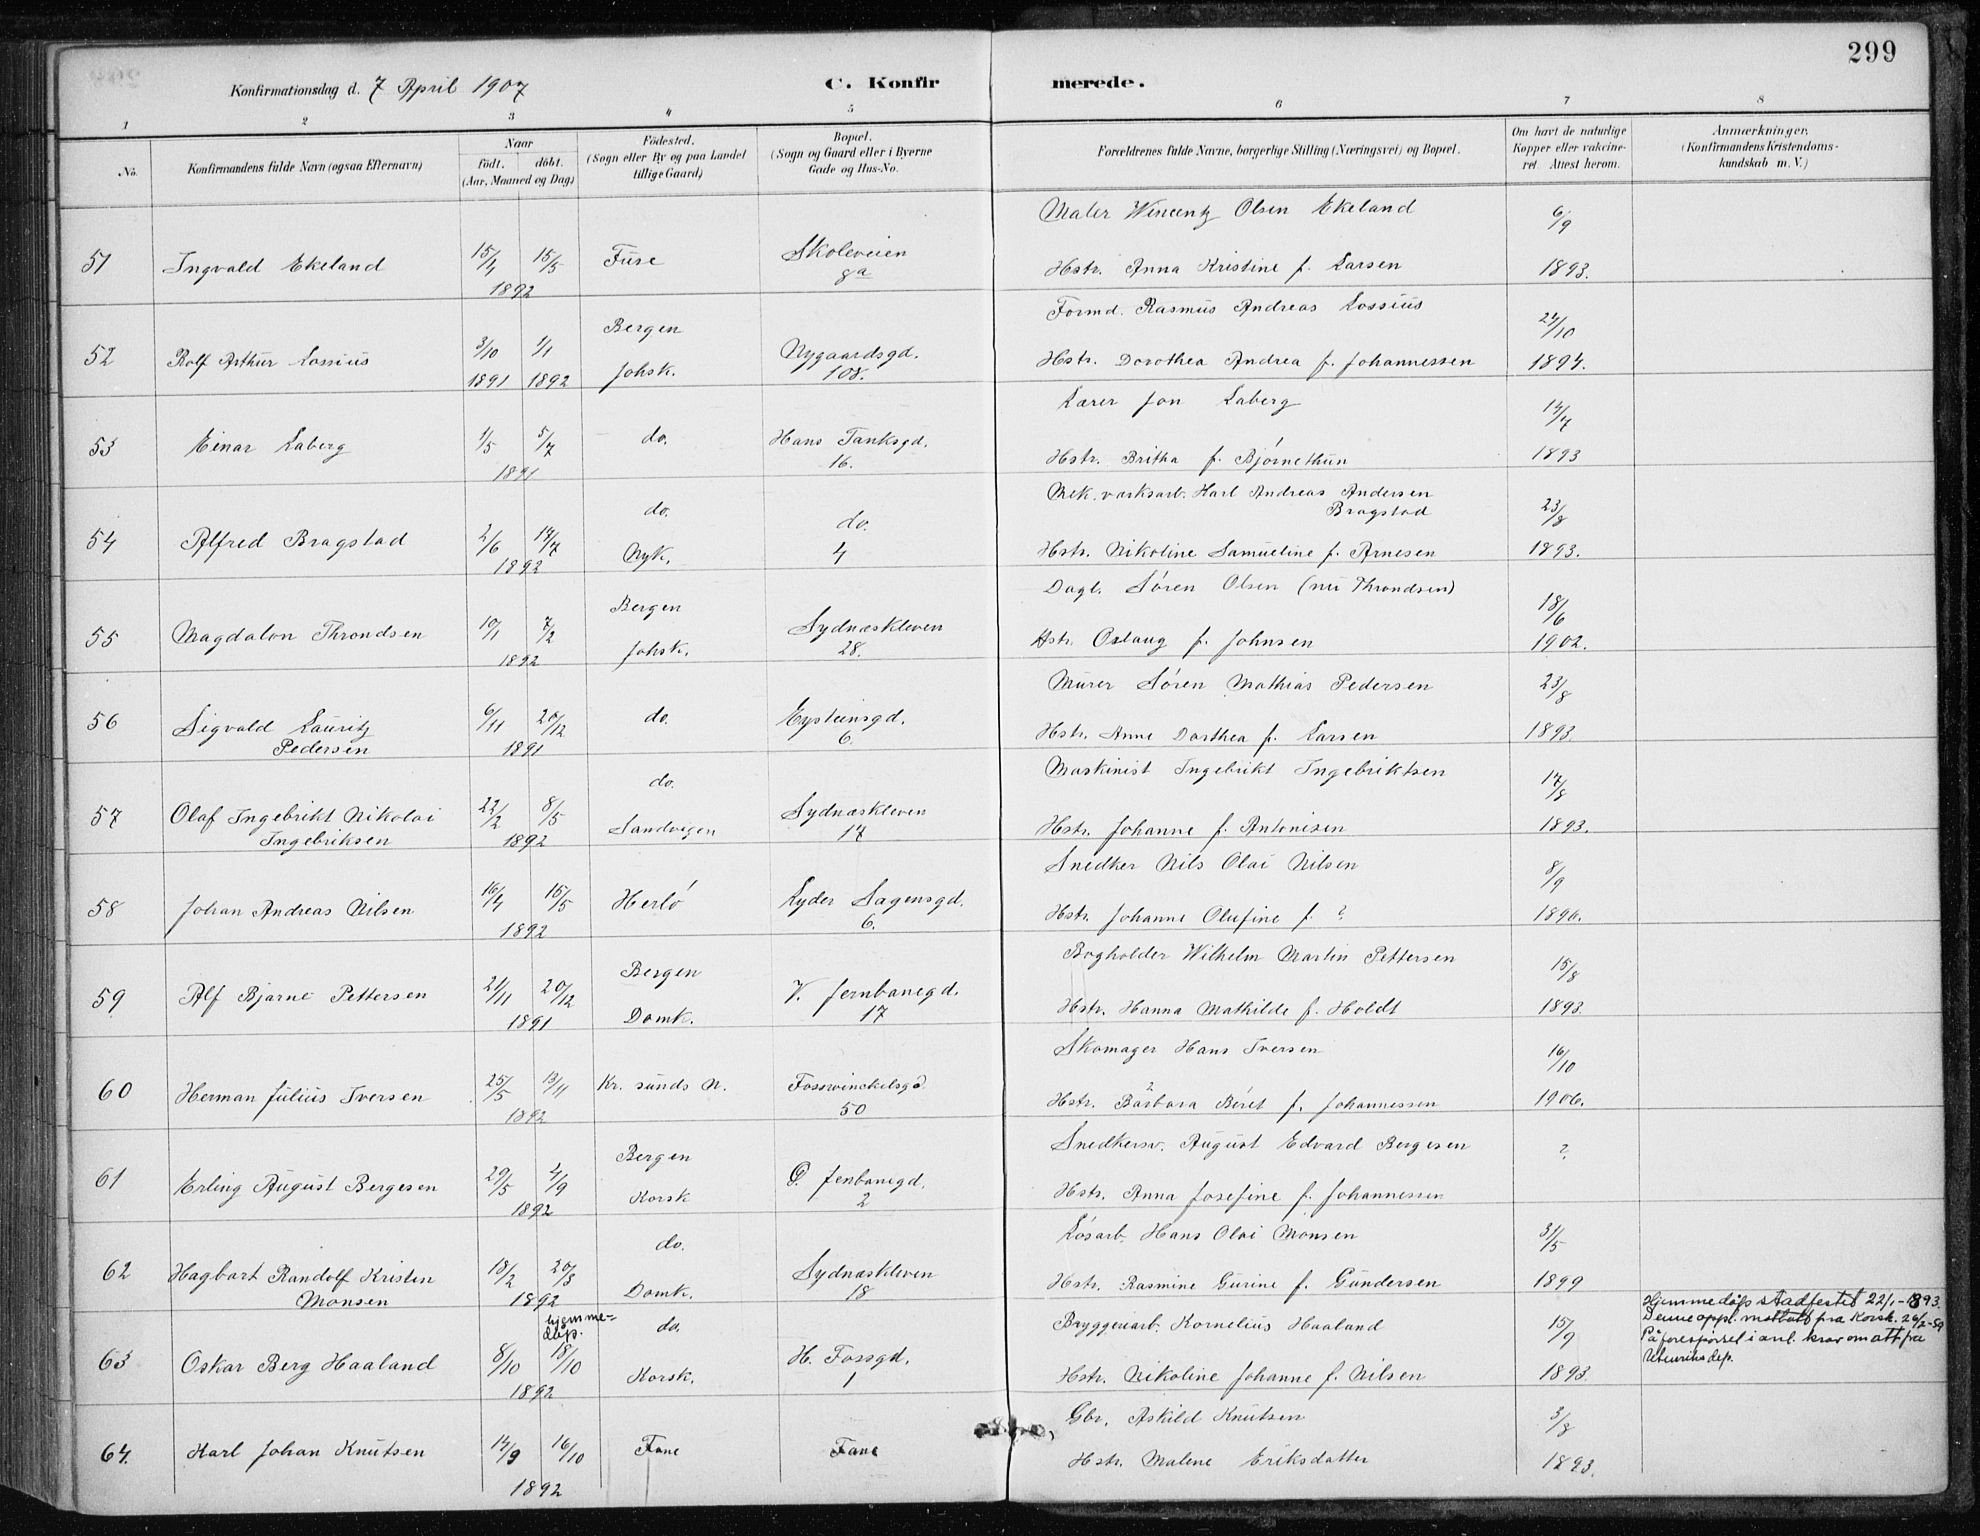 299
Konfirmationsdag d. 7 April 1907
C. Konfirmerede.
1 2 3 4 5 6 7 8
No.
Konfirmandens fulde Navn (ogsaa Efternavn)
Naar
født. døbt.
(Aar, Maaned og Dag)
Fødested.
(Sogn eller By og paa Landet
tillige Gaard)
Bopæl.
(Sogn og Gaard eller i Byerne
Gade og Hus-No.
Forældrenes fulde Navne, borgerlige Stilling (Næringsvei) og Bopæl.
Om havt de naturlige
Kopper eller vakcine-
ret. Attest herom.
Anmærkninger.
(Konfirmandens Kristendoms-
kundskab m. V.)
Maler Wincentz Olsen Ekeland 6/9
51 Ingvald Ekeland 15/4 15/5 Fure Skoleveien
8a
Hstr. Anna Kristine f. Larsen 1893.
1892
Formd. Rasmus Andreas Lossius 24/10
Bergen
52 Rolf Arthur Lossius 3/10 1/1 Nygaardsgd.
108.
Hstr. Dorothea Andrea f. Johannessen 1894.
1891 1892 Johsk.
Lærer Jon Laberg 14/7
53 Einar Laberg 1/5 5/7 do. Hans Tanksgd.
16.
Hstr. Britha f. Bjørnethun 1893
1891
Mek. værksarb. Karl Andreas Andersen
Bragstad 23/8
do.
do.
54 Alfred Bragstad 2/6 17/7 Nyk. 4
Hstr. Nikoline Samueline f. Arnesen 1893.
1892
Dagl. Søren Olsen (nu Throndsen) 18/6
Bergen
55 Magdalon Throndsen 10/1 7/2 Sydnæskleven
28.
Johsk.
Hstr. Oslaug f. Johnsen 1902.
1892
Murer Søren Mathias Pedersen 23/8
56 Sigvald Lauritz
Pedersen
6/11 20/12 do. Eysteinsgd.
6.
Hstr. Anne Dorthea f. Larsen 1893.
1891
Maskinist Ingebrikt Ingebriktsen 17/8
do.
57 Olaf Ingebrikt Nikolai
Ingebriksen
22/2 8/5 Sandvigen Sydnæskleven
17
Hstr. Johanne f. Antonisen 1893.
1892
Snedker Nils Olai Nilsen 8/9
58 Johan Andreas Nilsen 16/4 15/5 Herlø Lyder Sagensgd.
6.
Hstr. Johanne Olufine f. ? 1896.
1892
Bogholder Wilhelm Martin Pettersen 15/8
Bergen
59 Alf Bjarne Pettersen 21/11 20/12 V. Jernbanegd.
17
Domk.
Hstr. Hanna Mathilde f. Holdt 1893.
1891
Skomager Hans Iversen 16/10
60 Herman Julius Iversen 25/5 13/11 Kr. sunds N. Fosswinckelsgd.
50
Hstr. Barbara Beret f. Johannessen 1906.
1892
Snedkersv. August Edvard Bergesen ?
Bergen
61 Erling August Bergesen 29/5 4/9 Korsk Ø. Jenbanegd.
2
Hstr. Anna Josefine f. Johannessen
1892
Løsarb. Hans Olai Monsen 31/5
do.
62 Hagbart Randolf Kristen
Monsen
18/2 20/3 Domk. Sydnæskleven
18
Hstr. Rasmine Gurine f. Gundersen 1899
1892
hjemme-
døp.
do.
Bryggeriarb. Kornelius Haaland 15/9
Hjemmedøps stadfestet 22/1-1893.
Denne oppl. mottatt fra Korsk. 26/2-59
På forespørsel i anl. krav om att. fra
Utenriksdep.
63 Oskar Berg Haaland 8/10 18/10 Korsk. H. Fossgd.
1
Hstr. Nikoline Johanne f. Nilsen 1893.
1892
Gbr. Askild Knutsen 3/8
64. Karl Johan Knutsen 14/9 16/10 Fane Fane
Hstr. Malene Eriksdatter 1893.
1892